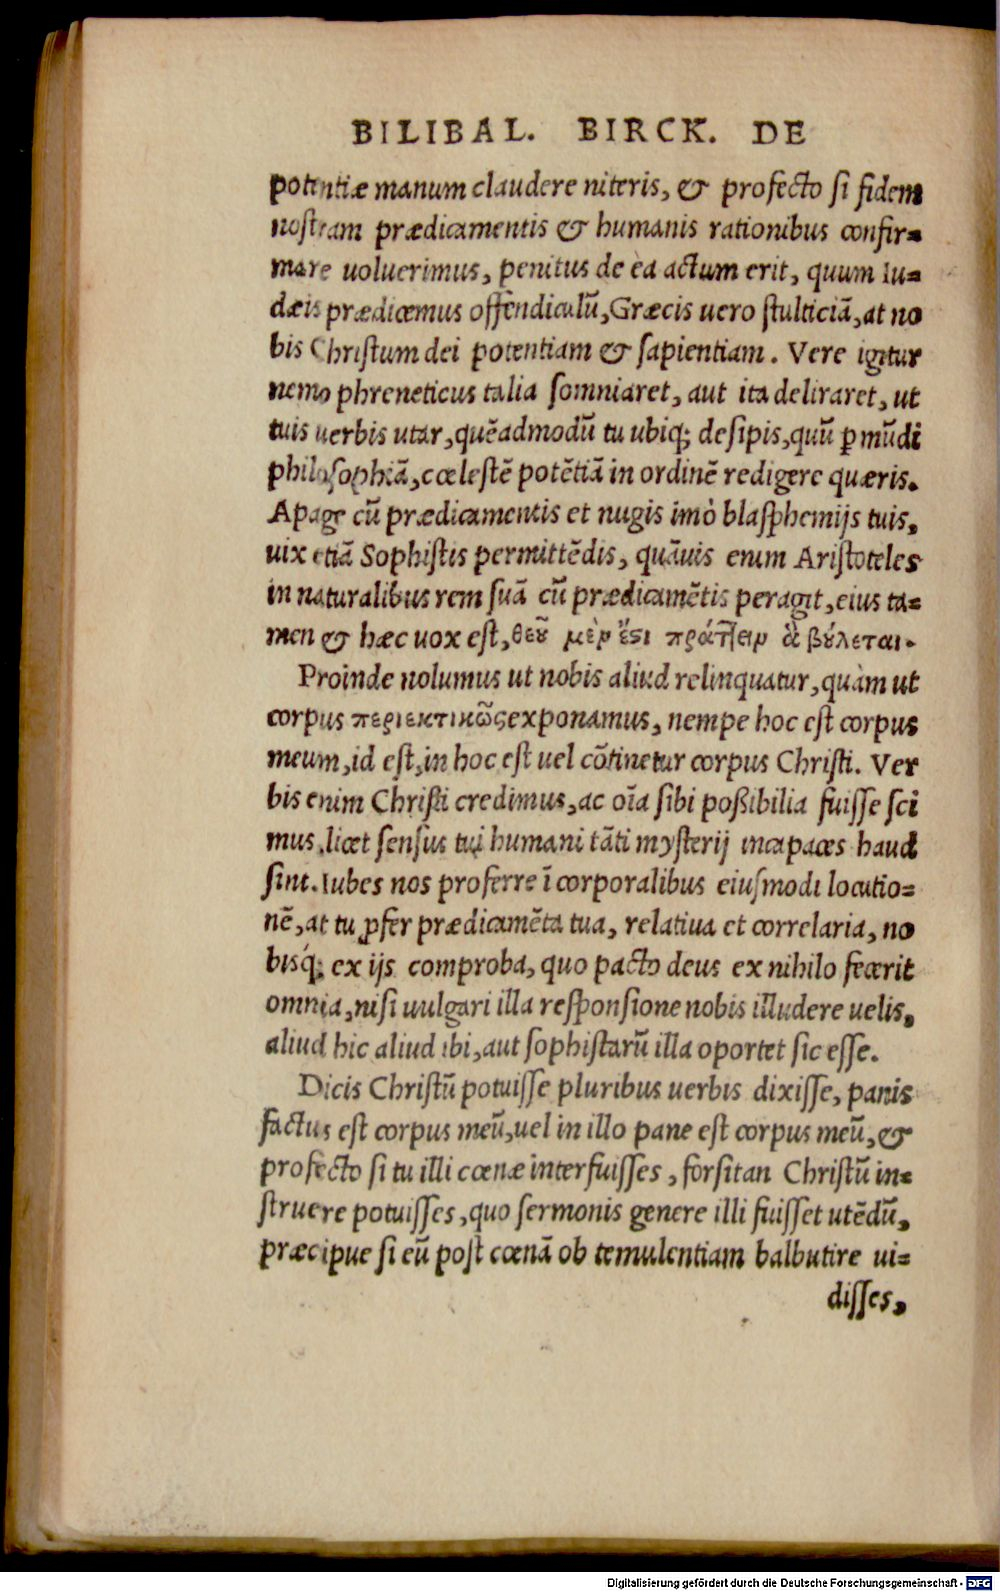 BILIBAL. BIRCK. DE
potentiæ manum claudere niteris, & profecto si fidem
nostram prædicamentis & humanis rationibus confir-
mare uoluerimus, penitus de ea actum erit, quum Iu-
dæis prædicemus offendiculū, Græcis uero stulticiā, at no
bis Christum dei potentiam & sapientiam. Vere igitur
nemo phreneticus talia somniaret, aut ita deliraret, ut
tuis uerbis utar, quēadmodū tu ubiq; desipis, quū ꝑ mūdi
philosophiā, cœlestē potētiā in ordinē redigere quæris.
Apage cū prædicamentis et nugis imò blasphemijs tuis,
uix etiā Sophistis permittēdis, quāuis enim Aristoteles
in naturalibus rem suā cū prædicamētis peragit, eius ta-
men & hæc uox est, θεοῦ μὲν ἔστι πράττειν ἃ βούλεται.
Proinde nolumus ut nobis aliud relinquatur, quàm ut
corpus περιεκτικῶς exponamus, nempe hoc est corpus
meum, id est, in hoc est uel cōtinetur corpus Christi. Ver
bis enim Christi credimus, ac oīa sibi poßibilia fuisse sci
mus, licet sensus tui humani tāti mysterij incapaces haud
sint. Iubes nos proferre ī corporalibus eiusmodi locutio-
nē, at tu ꝓfer prædicamēta tua, relatiua et correlaria, no
bisq́; ex ijs comproba, quo pacto deus ex nihilo fecerit
omnia, nisi uulgari illa responsione nobis illudere uelis,
aliud hic aliud ibi, aut sophistarū illa oportet sic esse.
Dicis Christū potuisse pluribus uerbis dixisse, panis
factus est corpus meū, uel in illo pane est corpus meū, &
profecto si tu illi cœnæ interfuisses, forsitan Christū in-
struere potuisses, quo sermonis genere illi fuisset utēdū,
præcipue si eū post cœnā ob temulentiam balbutire ui-
disses,
Digitalisierung gefördert durch die Deutsche Forschungsgemeinschaft - DFG